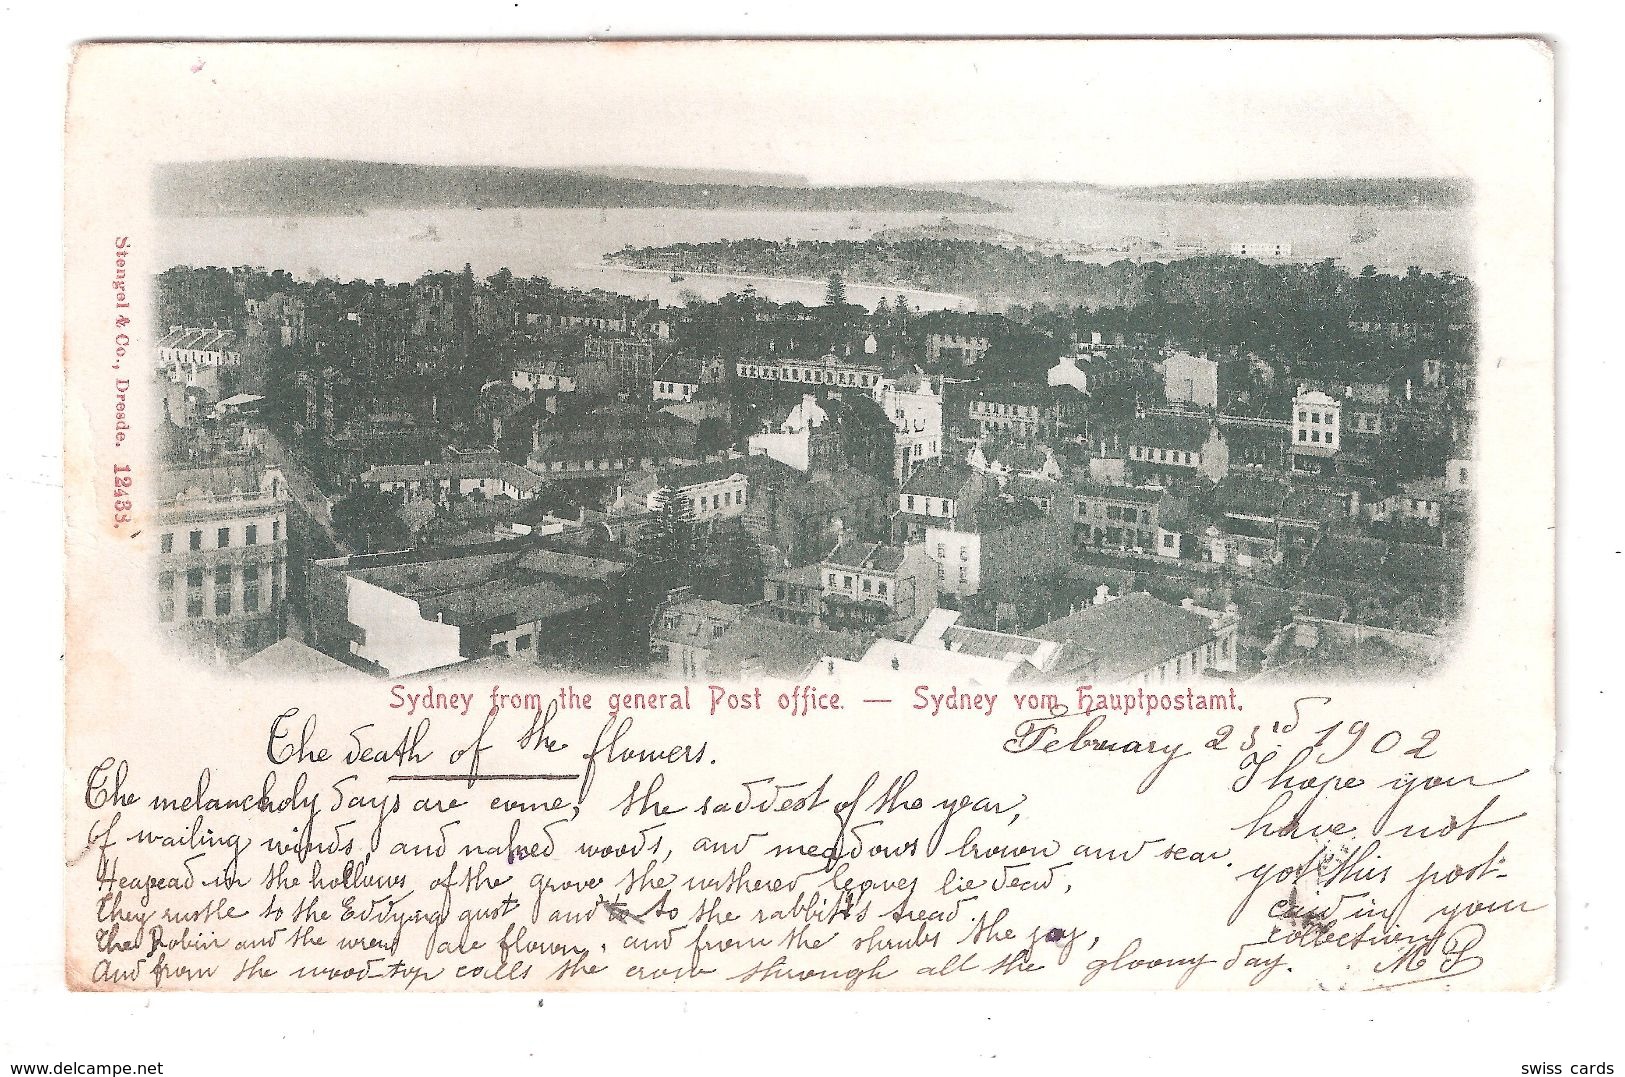 Stengel & Co., Dresde. 12433.
Sydney from the general Post office. — Sydney vom Hauptpostamt.
The death of the flowers.
February 23rd 1902
The melancholy days are come, the saddest of the year,
Of wailing winds, and naked woods, and meadows brown and sear.
Heapead in the hollows of the grove the withered leaves lie dead,
They rustle to the Eddying gust and to to the rabbit's tread.
The Robin and the wren are flown, and from the shrubs the jay,
And from the wood-top calls the crow through all the gloomy day.
I hope you
have not
got this post-
card in your
collection
M P
www.delcampe.net
swiss cards